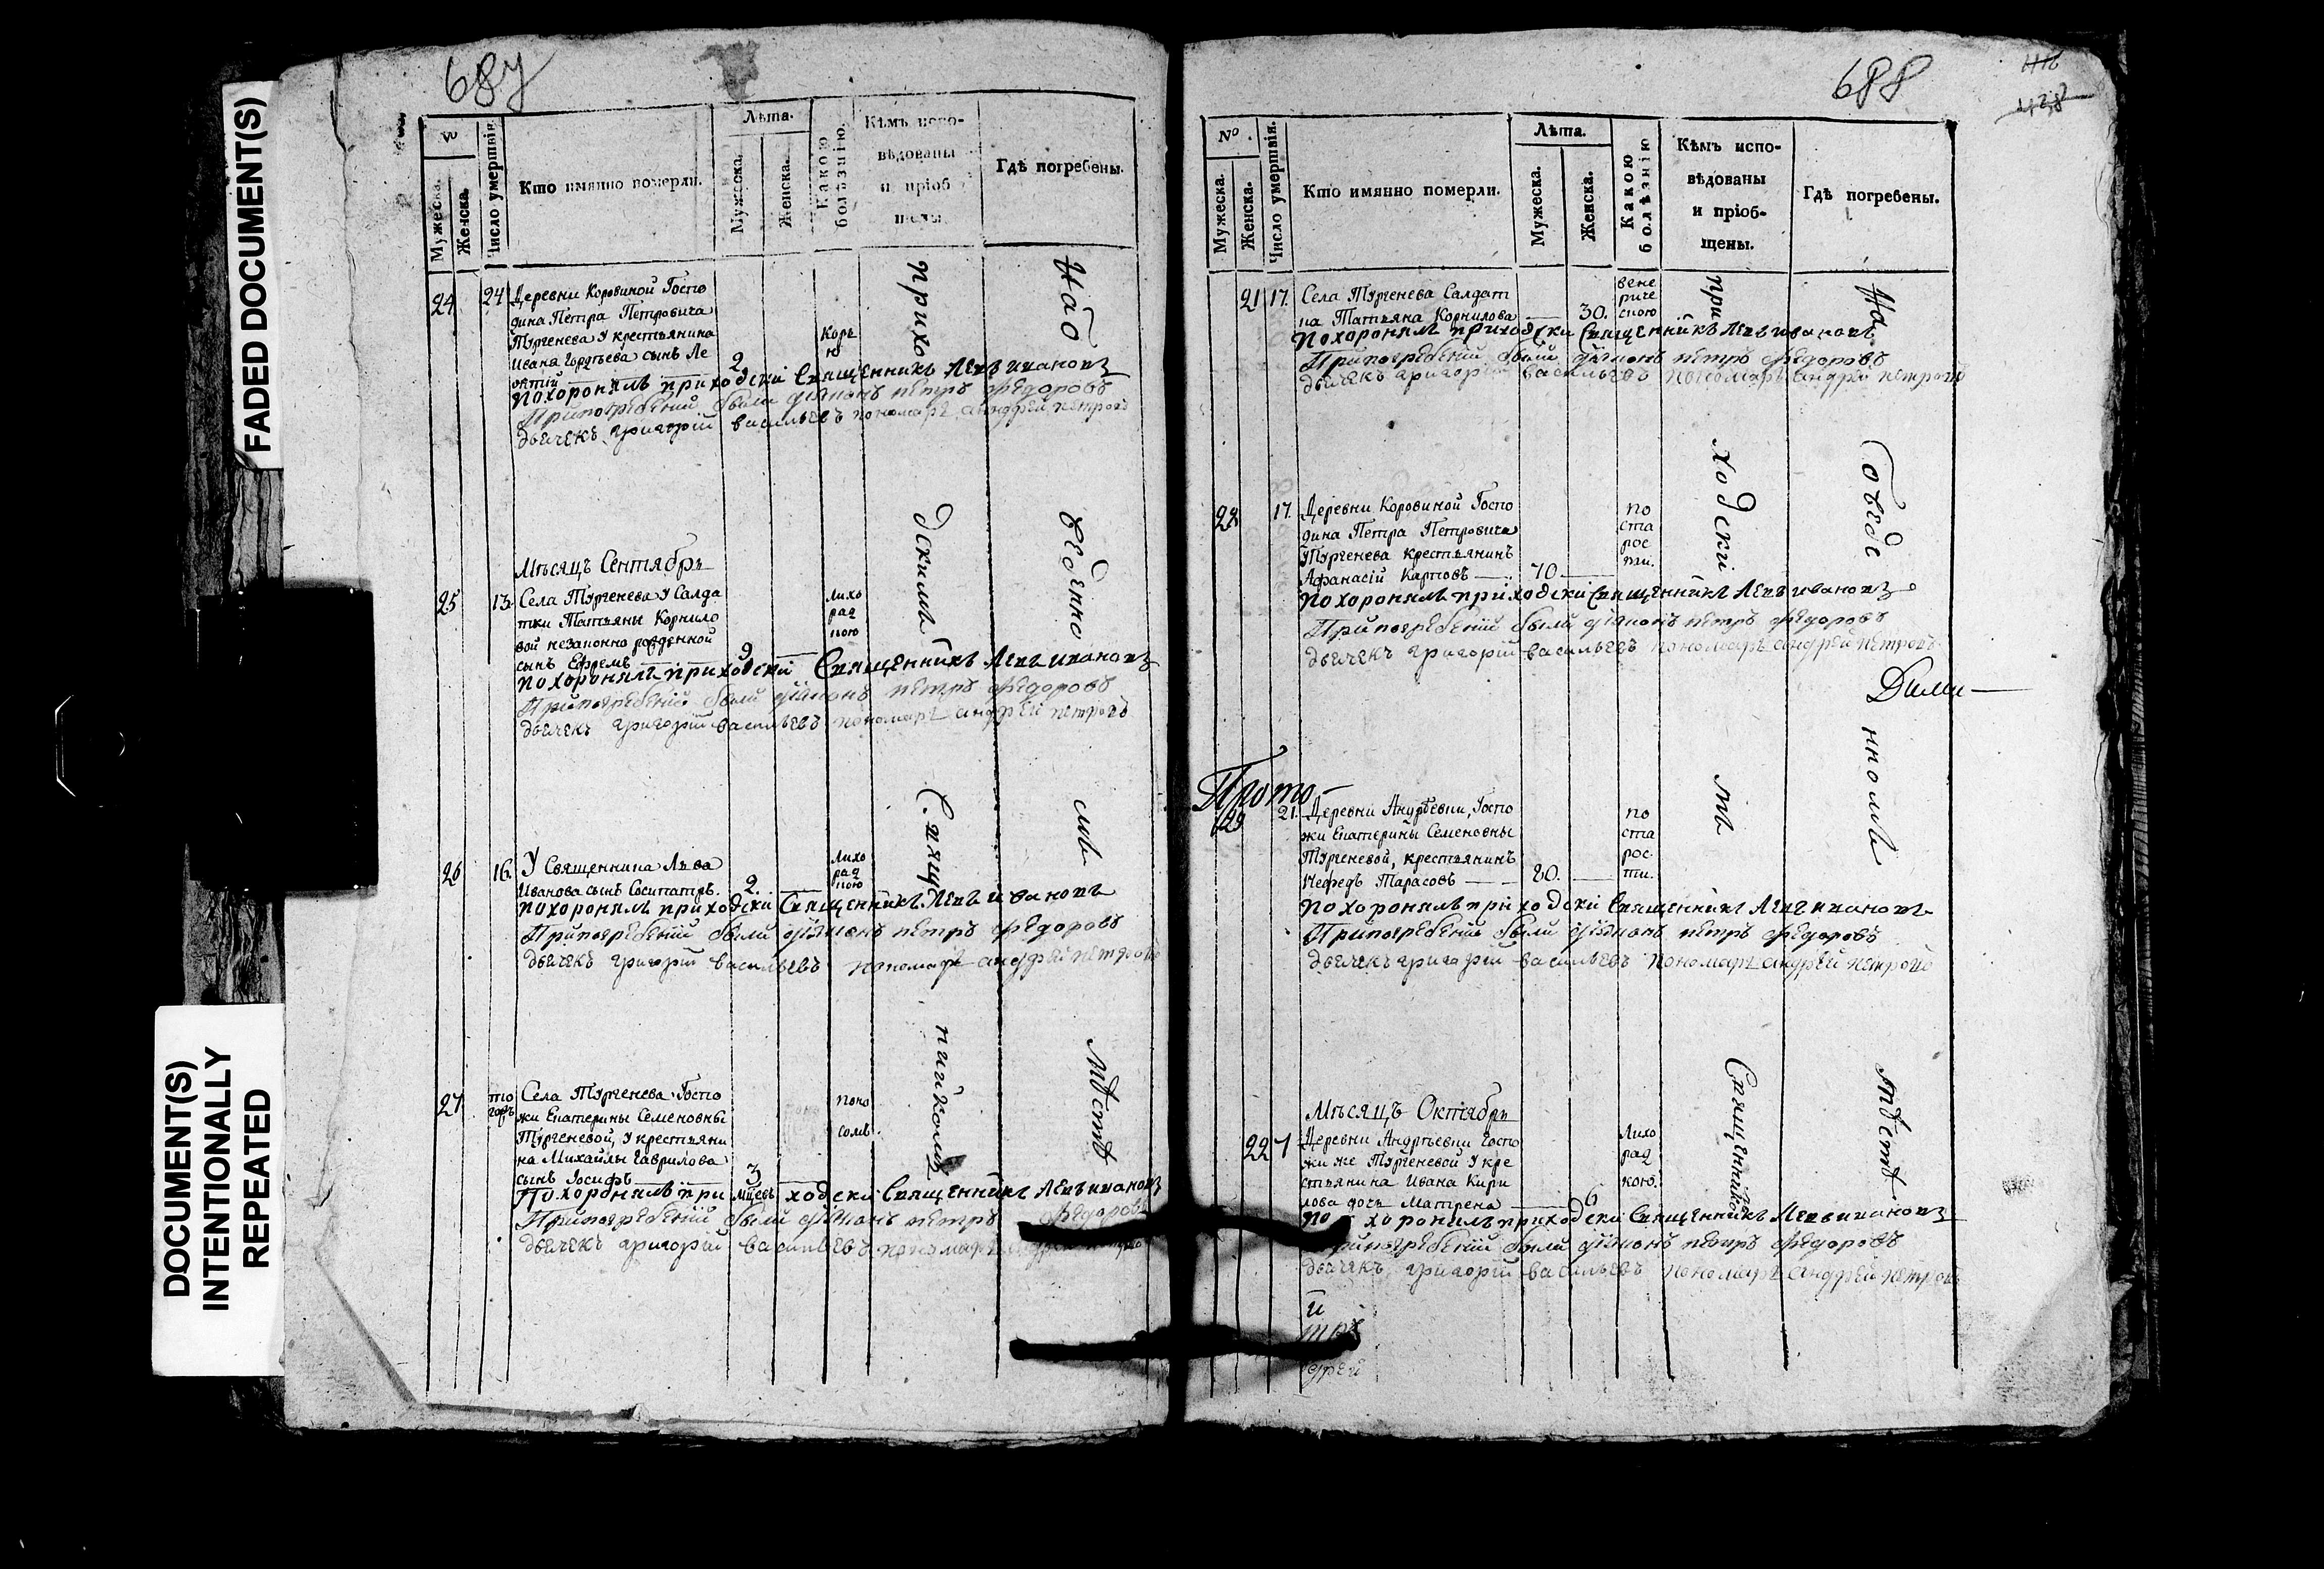 FADED DOCUMENT(S)
DOCUMENT(S)
INTENTIONALLY
REPEATED
687
№
Мужеска.
Женска.
Число умершія.
Кто имянно померли.
Лѣта.
Мужеска.
Женска.
Какою болѣзнію.
Кѣмъ испо-
вѣдованы
и пріоб
щены.
Гдѣ погребены.
24 24 Деревни Коровиной Госпо
дина Петра Петровича
Тургенева у крестьянина
Ивана Гордѣева сынъ Ле
онтій 2
Корь
ю
Похоронялъ приходскій Священникъ Левъ Ивановъ
При погребеніи были діяконъ Петръ Ѳедоровъ
дьячекъ Григорій Васильевъ пономарь Андрей Петровъ
Мѣсяцъ Сентябрь
25 13. Села Тургенева у Салда
тки Татьяны Корнило
вой незаконно рожденной
сынъ Ефремъ 9
Лихо
рад
кою
Похоронялъ приходскій Священникъ Левъ Ивановъ
При погребеніи были діяконъ Петръ Ѳедоровъ
дьячекъ Григорій Васильевъ пономарь Андрей Петровъ
26 16. У Священника Льва
Иванова сынъ Сосипатръ. 2.
Лихо
рад
кою
Похоронялъ приходскій Священникъ Левъ Ивановъ
При погребеніи были діяконъ Петръ Ѳедоровъ
дьячекъ Григорій Васильевъ пономарь Андрей Петровъ
27 то
горъ Села Тургенева Госпо
жи Екатерины Семеновны
Тургеневой, у крестьяни
на Михайлы Гаврилова
сынъ Іосифъ 3
мцевъ
поно
сомъ.
Похоронялъ приходскій Священникъ Левъ Ивановъ
При погребеніи были діяконъ Петръ Ѳедоровъ
дьячекъ Григорій Васильевъ пономарь
приходскимъ Священникомъ
На отведенномъ мѣстѣ
688
№
Мужеска.
Женска.
Число умершія.
Кто имянно померли.
Лѣта.
Мужеска.
Женска.
Какою болѣзнію
Кѣмъ испо-
вѣдованы
и пріоб-
щены.
Гдѣ погребены.
21 17. Села Тургенева Салдат
ка Татьяна Корнилова 30.
вене
риче
скою
Похоронялъ приходскій Священникъ Левъ Ивановъ
При погребеніи были діяконъ Петръ Ѳедоровъ
дьячекъ Григорій Васильевъ пономарь Андрей Петровъ
28 17. Деревни Коровиной Госпо
дина Петра Петровича
Тургенева крестьянинъ
Афанасій Карповъ 70
по
ста
рос
ти.
Похоронялъ приходскій Священникъ Левъ Ивановъ
При погребеніи были діяконъ Петръ Ѳедоровъ
дьячекъ Григорій Васильевъ пономарь Андрей Петровъ
Прото-
29 21. Деревни Андреевки, Госпо
жи Екатерины Семеновны
Тургеневой, крестьянинъ
Нефедъ Тарасовъ 80.
по
ста
рос
ти.
Похоронялъ приходскій Священникъ Левъ Ивановъ
При погребеніи были діяконъ Петръ Ѳедоровъ
дьячекъ Григорій Васильевъ пономарь Андрей Петровъ
Мѣсяцъ Октябрь
22 7 Деревни Андрѣевки Госпо
жи же Тургеневой у кре
стьянина Ивана Кири
лова дочь Матрена 6
Лихо
рад
кою.
Похоронилъ приходскій Священникъ Левъ Ивановъ
При погребеніи были діяконъ Петръ Ѳедоровъ
дьячекъ Григорій Васильевъ пономарь Андрей Петровъ
приходскимъ Священникомъ